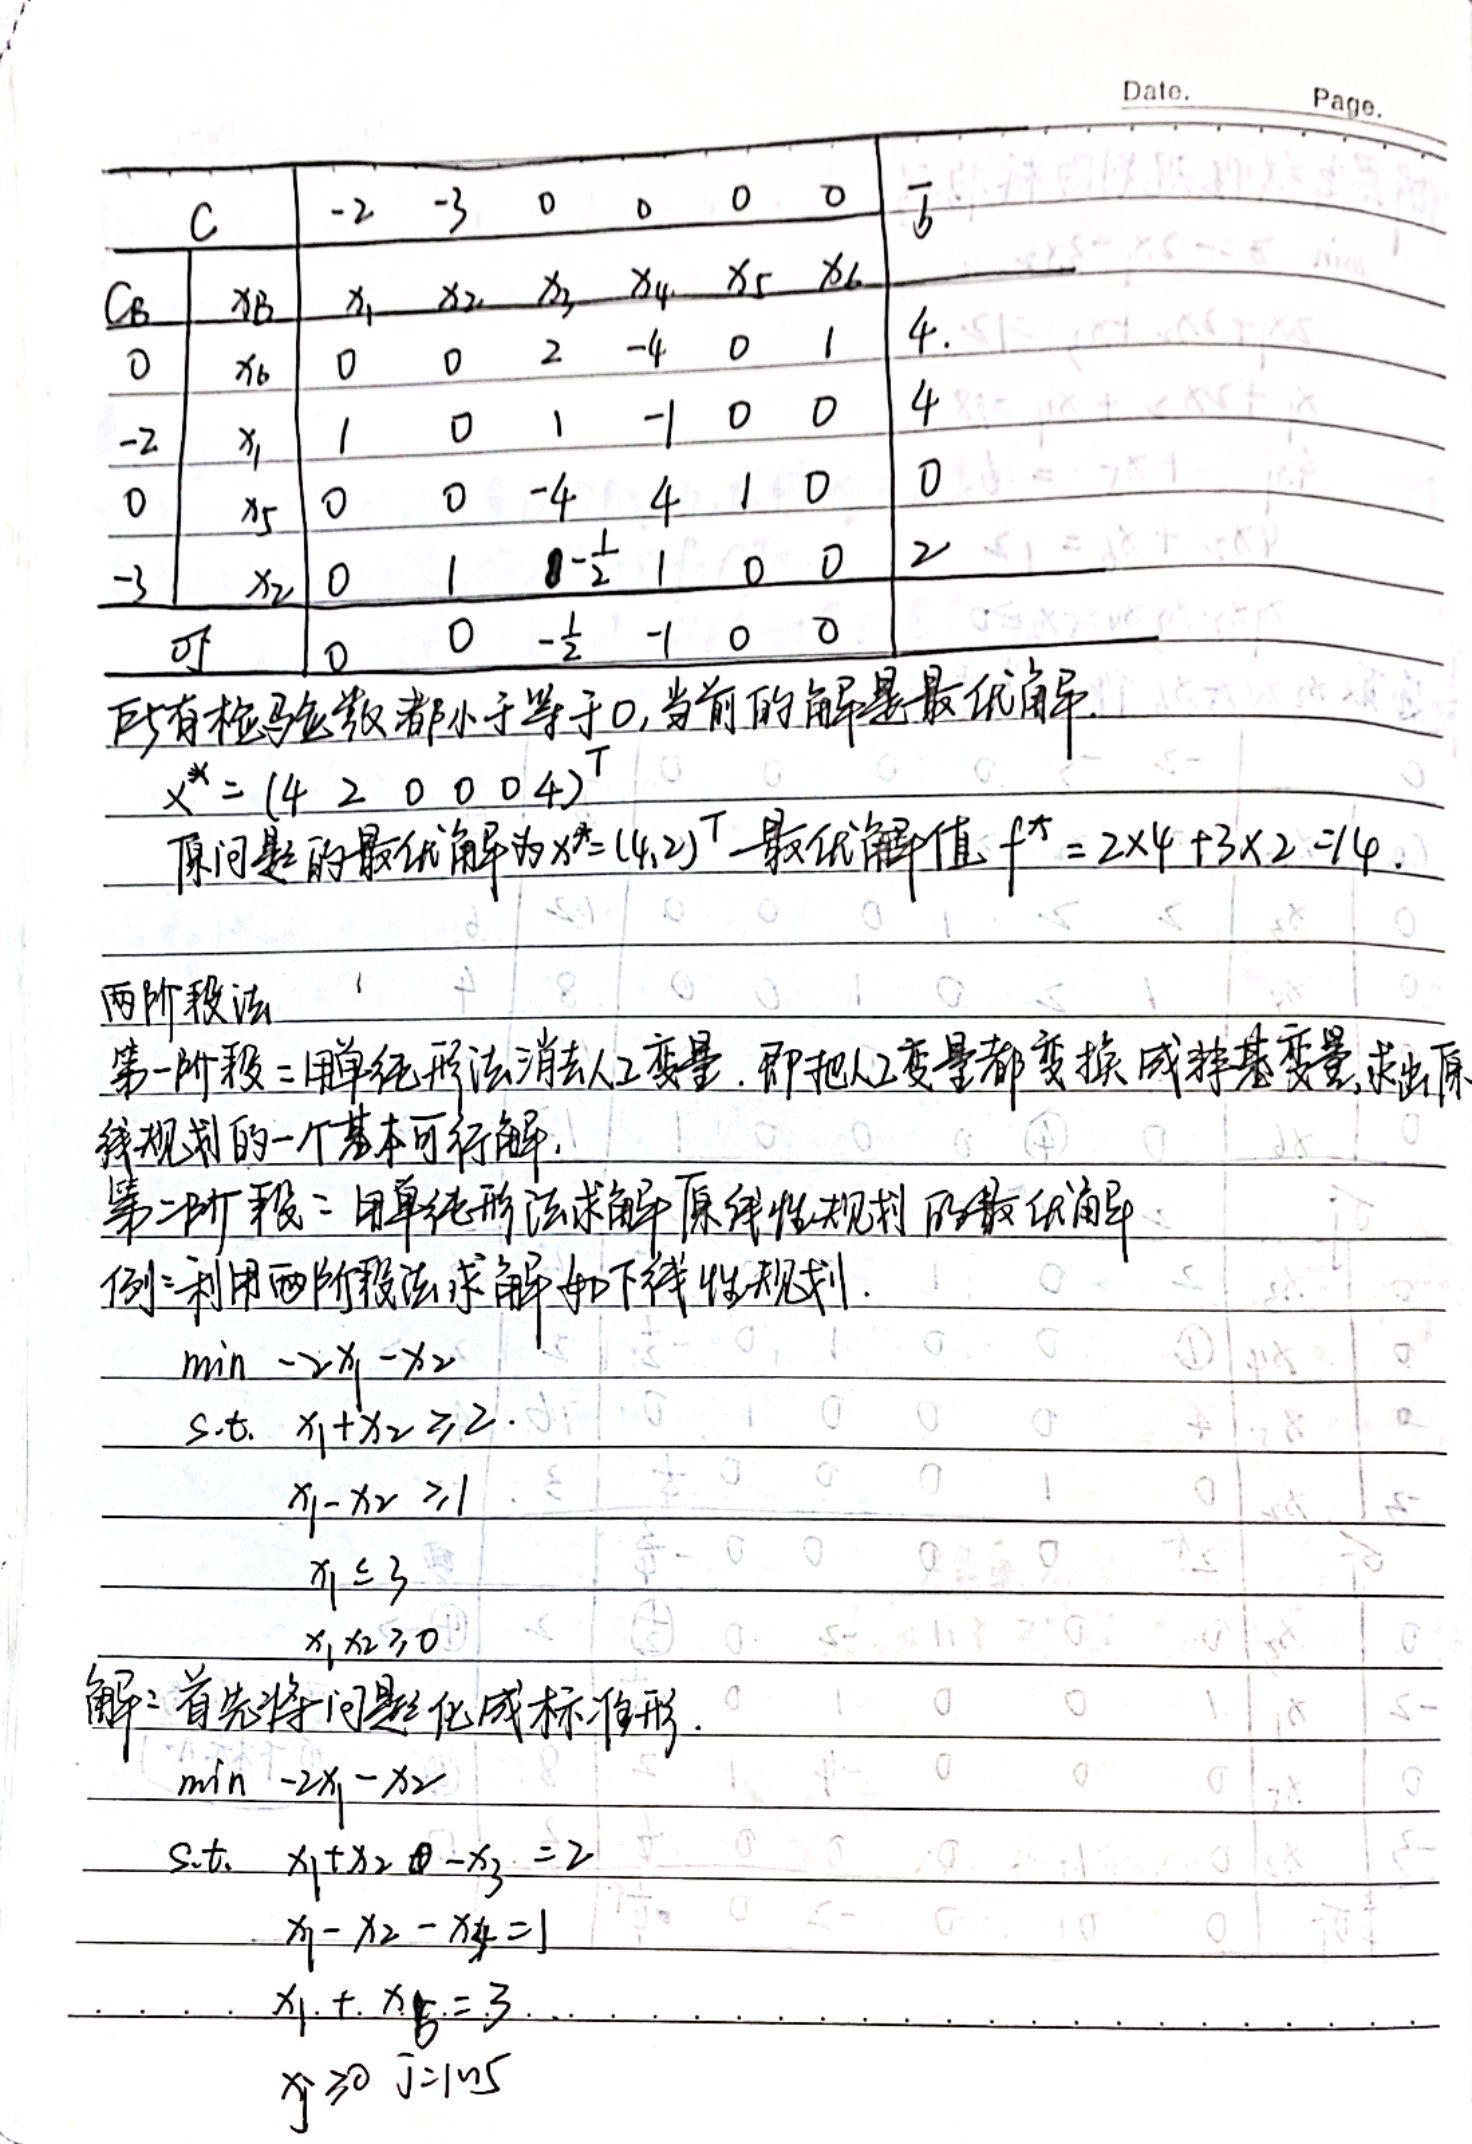 Date. Page.
C -2 -3 0 0 0 0 b̄
CB XB x₁ x₂ x₃ x₄ x₅ x₆
0 x₆ 0 0 2 -4 0 1 4.
-2 x₁ 1 0 1 -1 0 0 4
0 x₅ 0 0 -4 4 1 0 0
-3 x₂ 0 1 -1/2 1 0 0 2
σj 0 0 -1/2 -1 0 0
所有检验数都小于等于0,当前的解是最优解.
x* = (4 2 0 0 0 4)ᵀ
原问题的最优解为x*=(4,2)ᵀ 最优解值 f* = 2×4+3×2=14.
两阶段法
第一阶段:用单纯形法消去人工变量.即把人工变量都变换成非基变量,求出原
线规划的一个基本可行解.
第二阶段:用单纯形法求解原线性规划的最优解
例:利用两阶段法求解如下线性规划.
min -2x₁-x₂
s.t. x₁+x₂≥2.
x₁-x₂≥1
x₁≤3
x₁x₂≥0
解:首先将问题化成标准形.
min -2x₁-x₂
s.t. x₁+x₂-x₃=2
x₁-x₂-x₄=1
x₁+x₅=3
xj≥0 j=1~5